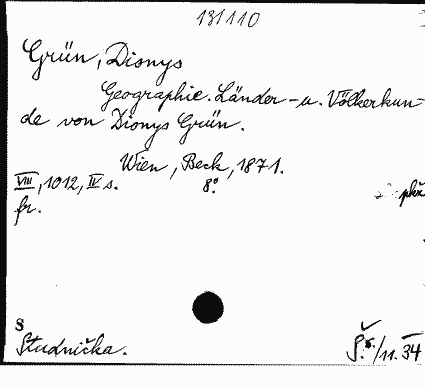 131110
Grün, Dionys
Geographie. Länder- u. Völkerkun-
de von Dionys Grün.
Wien, Beck, 1871.
VIII, 1012, IV s. 8°.
fr.
S
Studnička.
Š. /11. 34